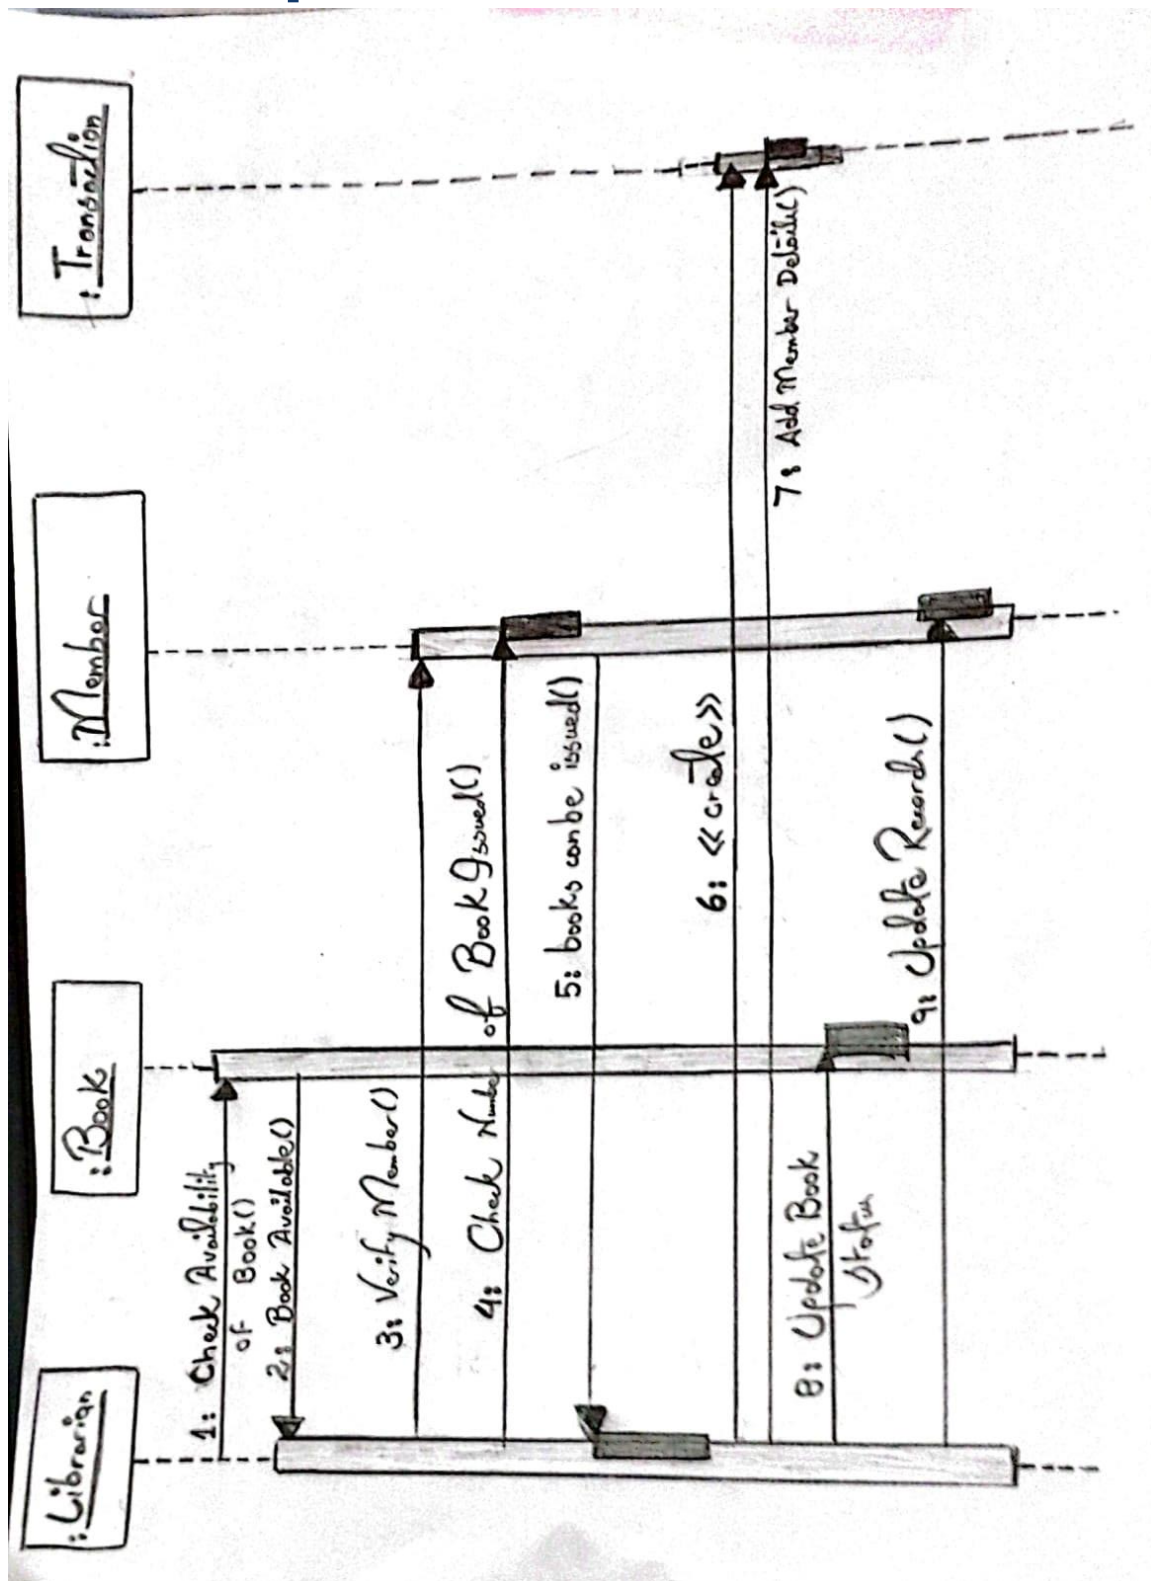 :Librarian
:Book
:Member
:Transaction
1: Check Availability
of Book()
2: Book Available()
3: Verify Member()
4: Check Number of Book Issued()
5: books can be issued()
6: <<create>>
7: Add Member Details()
8: Update Book
Status
9: Update Records()